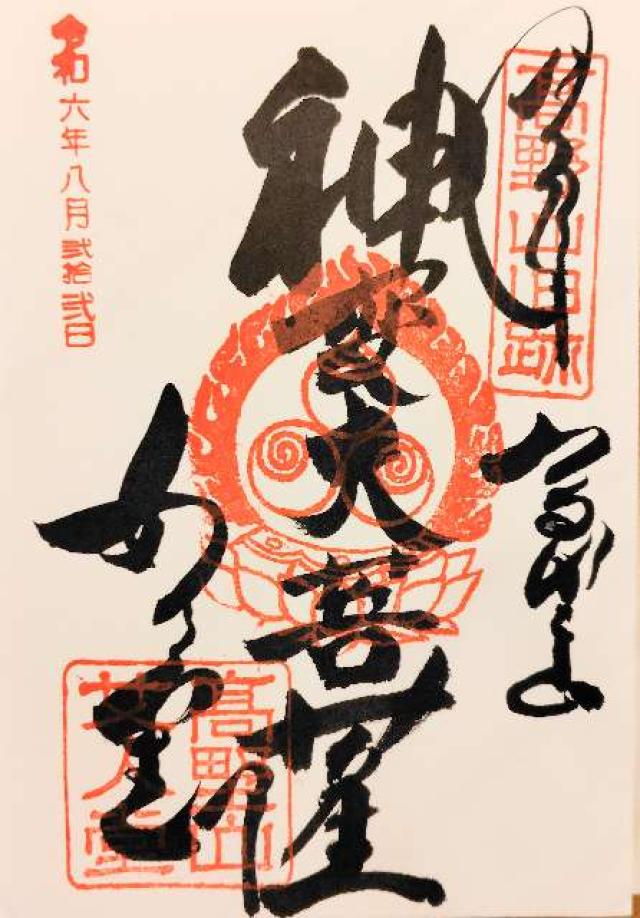 高野山旧跡
神変大菩薩
女人堂
高野山
女人堂
令和六年八月弐拾弐日